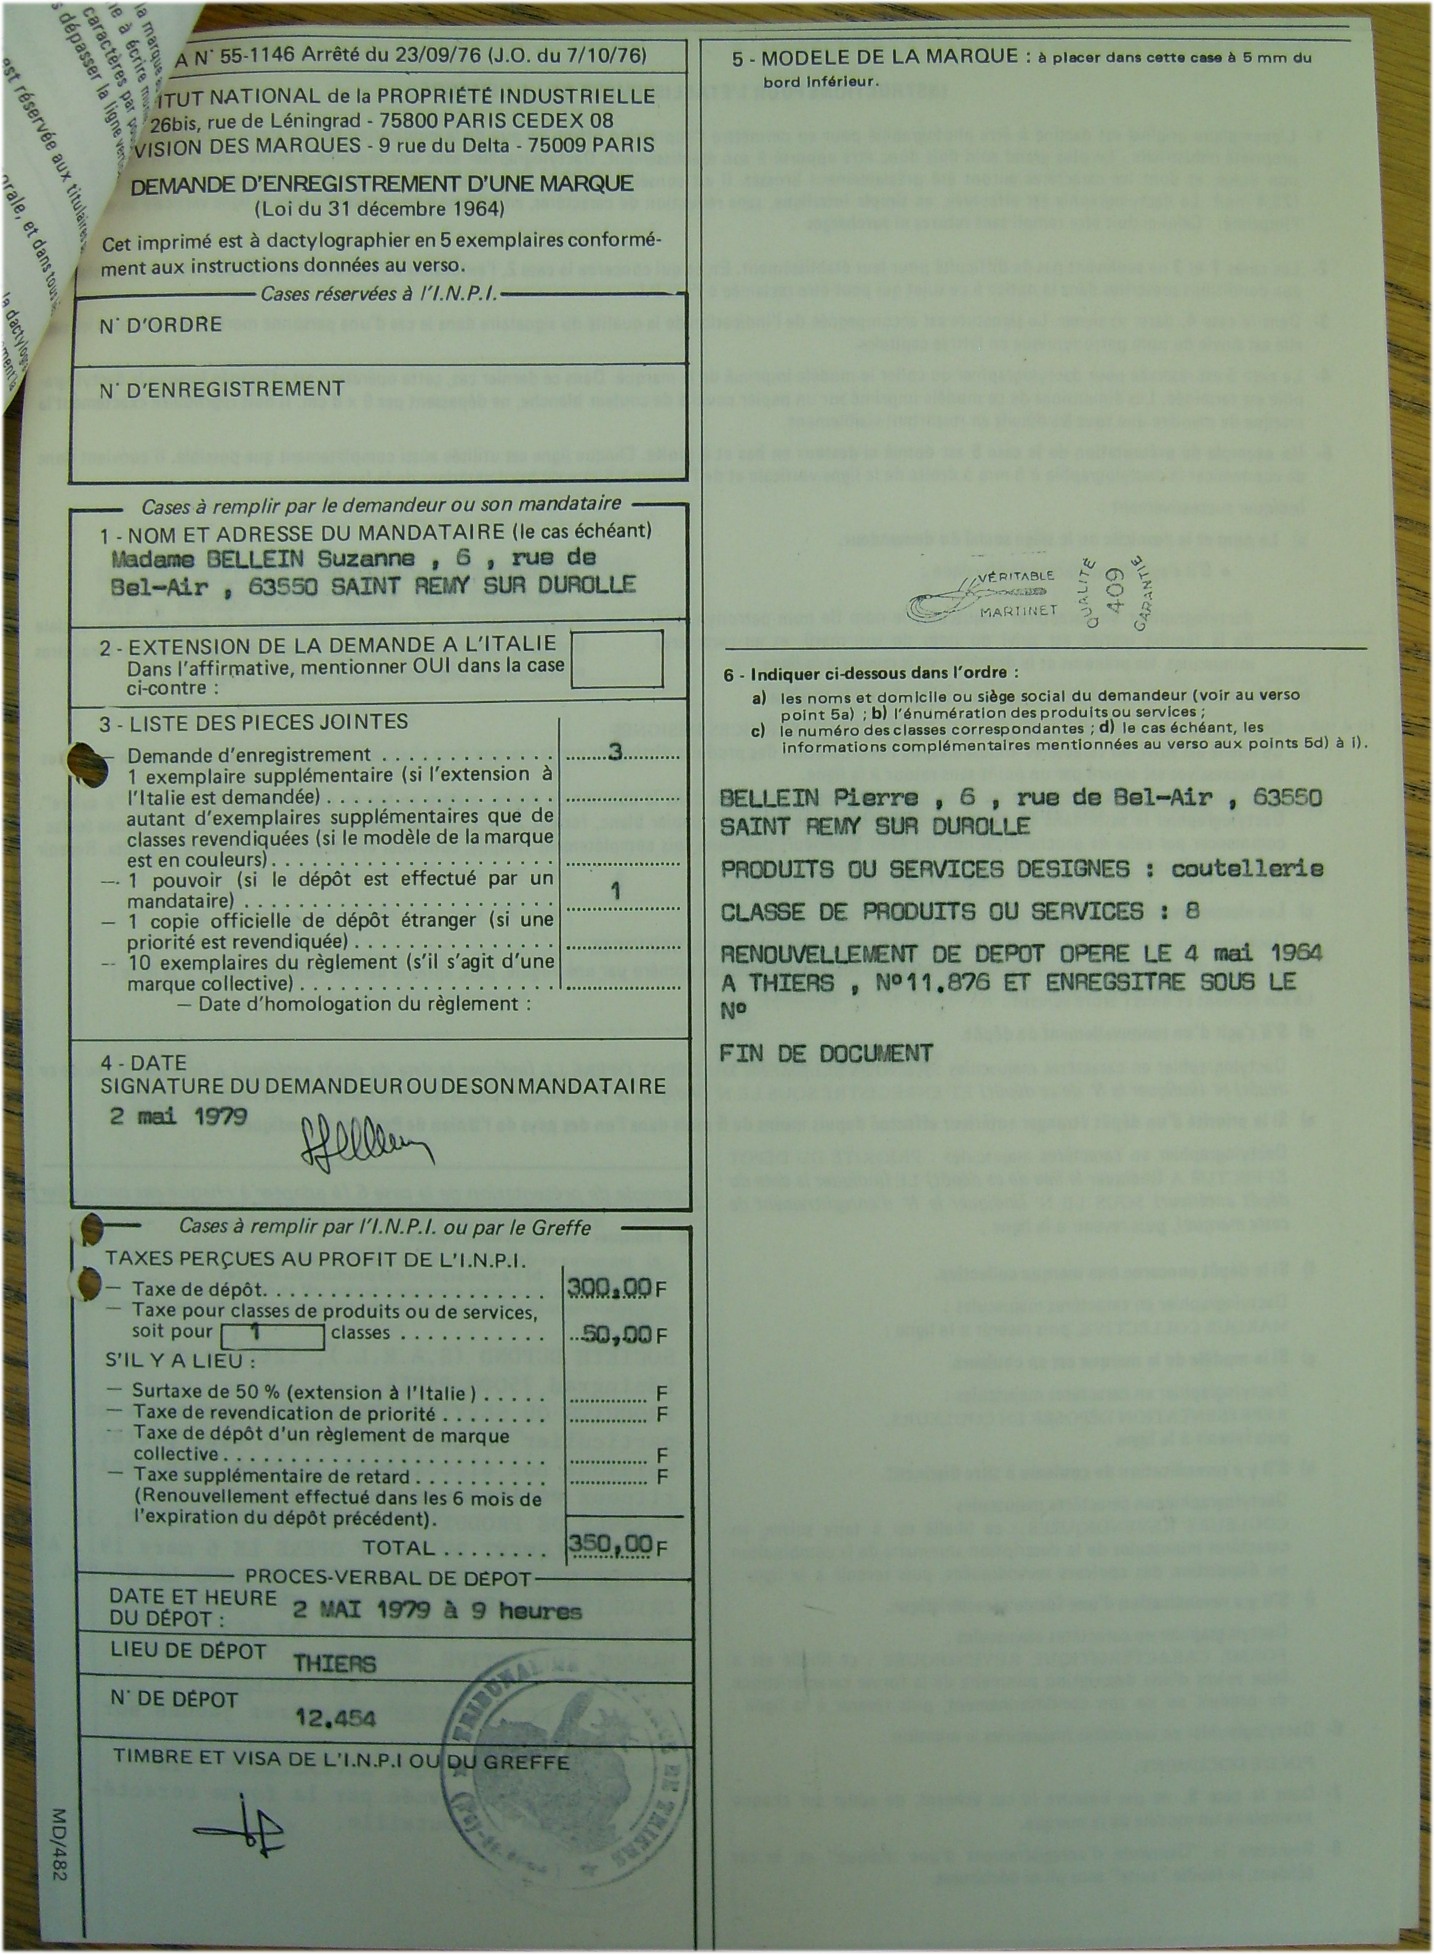 A N° 55-1146 Arrêté du 23/09/76 (J.O. du 7/10/76)
ITUT NATIONAL de la PROPRIÉTÉ INDUSTRIELLE
26bis, rue de Léningrad - 75800 PARIS CEDEX 08
VISION DES MARQUES - 9 rue du Delta - 75009 PARIS
DEMANDE D'ENREGISTREMENT D'UNE MARQUE
(Loi du 31 décembre 1964)
Cet imprimé est à dactylographier en 5 exemplaires conformé-
ment aux instructions données au verso.
Cases réservées à l'I.N.P.I.
N° D'ORDRE
N° D'ENREGISTREMENT
Cases à remplir par le demandeur ou son mandataire
1 - NOM ET ADRESSE DU MANDATAIRE (le cas échéant)
Madame BELLEIN Suzanne , 6 , rue de
Bel-Air , 63550 SAINT REMY SUR DUROLLE
2 - EXTENSION DE LA DEMANDE A L'ITALIE
Dans l'affirmative, mentionner OUI dans la case
ci-contre :
3 - LISTE DES PIECES JOINTES
— Demande d'enregistrement . . . . . . . . . . . . . 3
1 exemplaire supplémentaire (si l'extension à
l'Italie est demandée) . . . . . . . . . . . . . . . . .
autant d'exemplaires supplémentaires que de
classes revendiquées (si le modèle de la marque
est en couleurs) . . . . . . . . . . . . . . . . . . . . .
— 1 pouvoir (si le dépôt est effectué par un
mandataire) . . . . . . . . . . . . . . . . . . . . . . . 1
— 1 copie officielle de dépôt étranger (si une
priorité est revendiquée) . . . . . . . . . . . . . . .
-- 10 exemplaires du règlement (s'il s'agit d'une
marque collective) . . . . . . . . . . . . . . . . . . .
— Date d'homologation du règlement :
4 - DATE
SIGNATURE DU DEMANDEUR OU DE SON MANDATAIRE
2 mai 1979
Cases à remplir par l'I.N.P.I. ou par le Greffe
TAXES PERÇUES AU PROFIT DE L'I.N.P.I.
— Taxe de dépôt. . . . . . . . . . . . . . . . . . . . . 300,00 F
— Taxe pour classes de produits ou de services,
soit pour 1 classes . . . . . . . . . . . 50,00 F
S'IL Y A LIEU :
— Surtaxe de 50 % (extension à l'Italie) . . . . . F
— Taxe de revendication de priorité . . . . . . . . F
-- Taxe de dépôt d'un règlement de marque
collective . . . . . . . . . . . . . . . . . . . . . . . . F
— Taxe supplémentaire de retard . . . . . . . . . . F
(Renouvellement effectué dans les 6 mois de
l'expiration du dépôt précédent).
TOTAL . . . . . . . . 350,00 F
PROCES-VERBAL DE DÉPOT
DATE ET HEURE
DU DÉPOT : 2 MAI 1979 à 9 heures
LIEU DE DÉPOT THIERS
N° DE DÉPOT 12.454
TIMBRE ET VISA DE L'I.N.P.I OU DU GREFFE
TRIBUNAL DE THIERS
MD/482
5 - MODELE DE LA MARQUE : à placer dans cette case à 5 mm du
bord inférieur.
VÉRITABLE
MARTINET
QUALITÉ
409
GARANTIE
6 - Indiquer ci-dessous dans l'ordre :
a) les noms et domicile ou siège social du demandeur (voir au verso
point 5a) ; b) l'énumération des produits ou services ;
c) le numéro des classes correspondantes ; d) le cas échéant, les
informations complémentaires mentionnées au verso aux points 5d) à i).
BELLEIN Pierre , 6 , rue de Bel-Air , 63550
SAINT REMY SUR DUROLLE
PRODUITS OU SERVICES DESIGNES : coutellerie
CLASSE DE PRODUITS OU SERVICES : 8
RENOUVELLEMENT DE DEPOT OPERE LE 4 mai 1964
A THIERS , N°11.876 ET ENREGSITRE SOUS LE
N°
FIN DE DOCUMENT